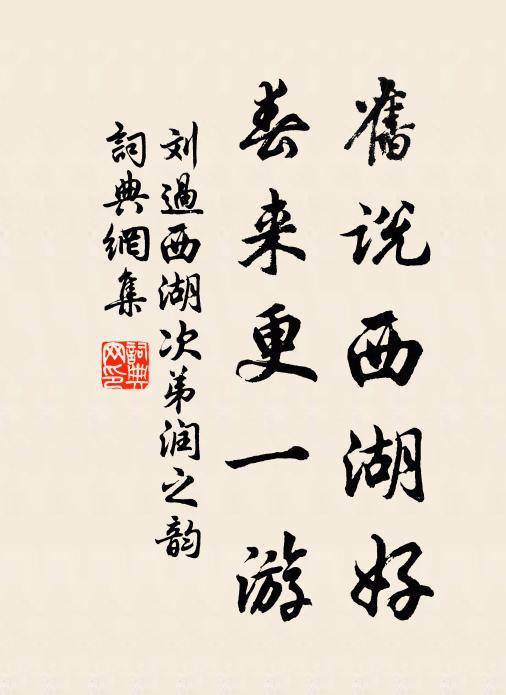 舊说西湖好
春来更一游
刘過西湖次弟润之韵
詞典網集
詞典
网印